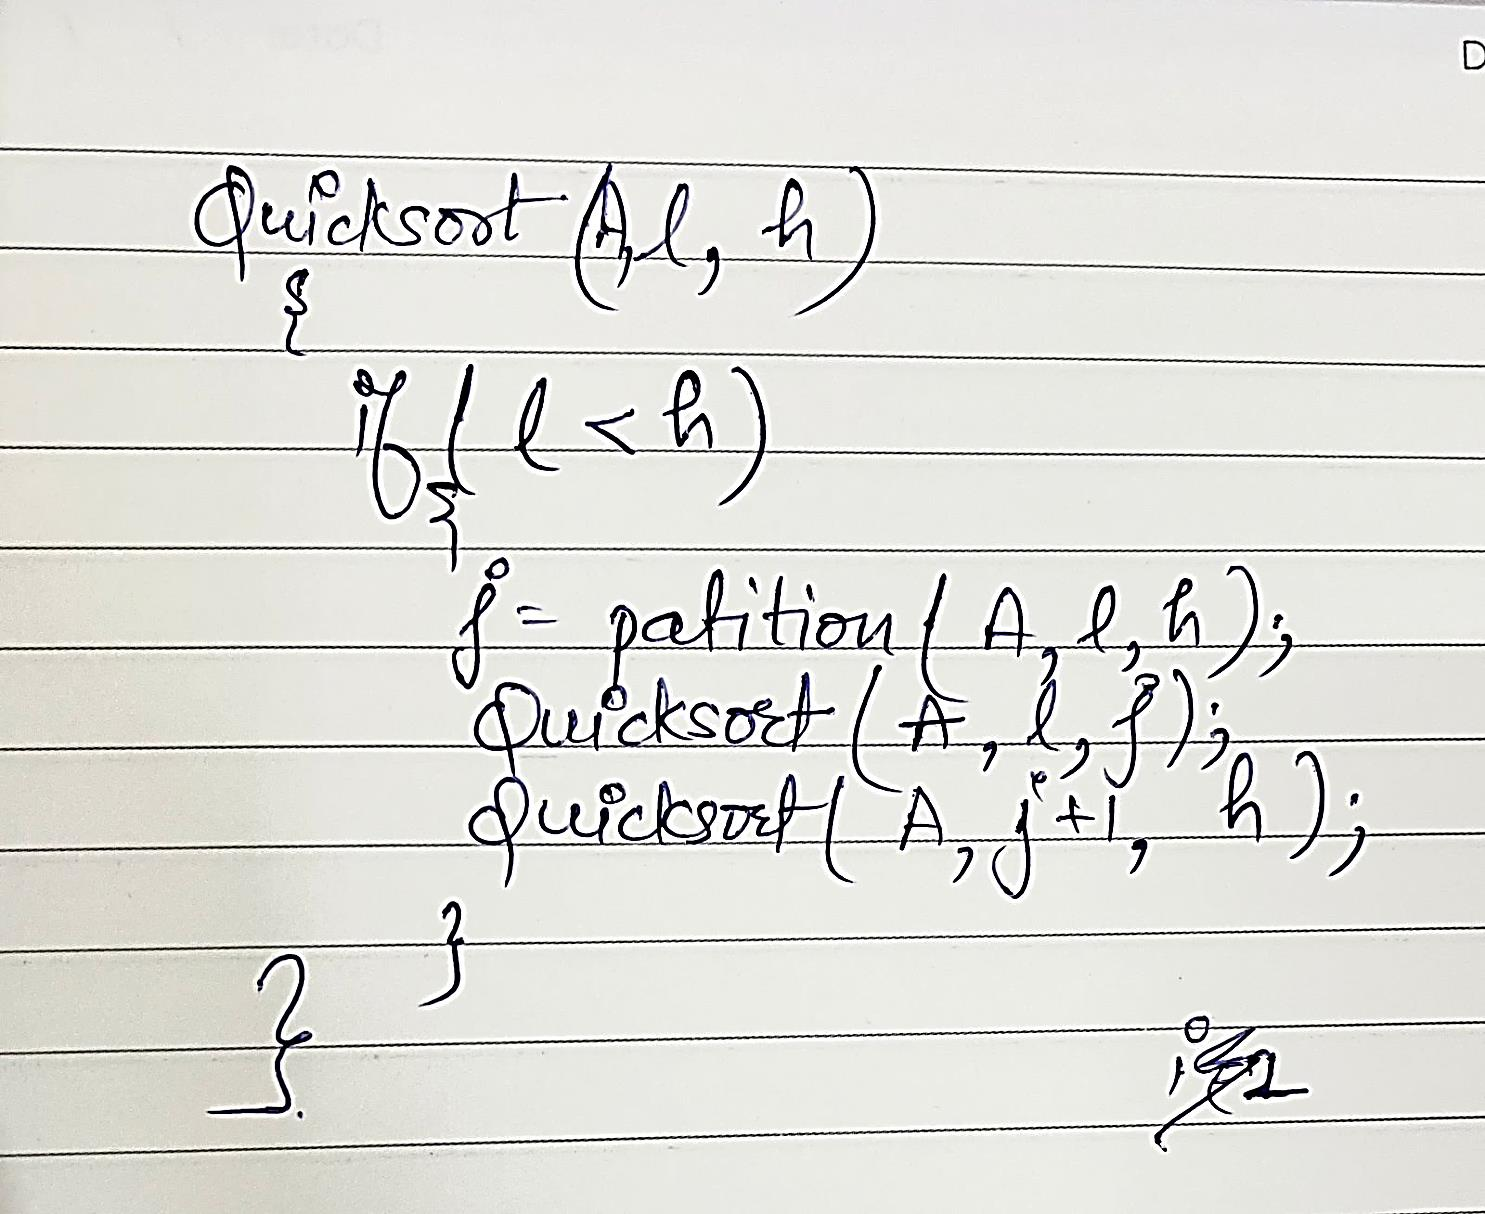 D
Quicksort (A, l, h)
{
if ( l < h)
{
j = patition ( A, l, h);
Quicksort ( A, l, j);
Quicksort( A, j+1, h);
}
}.